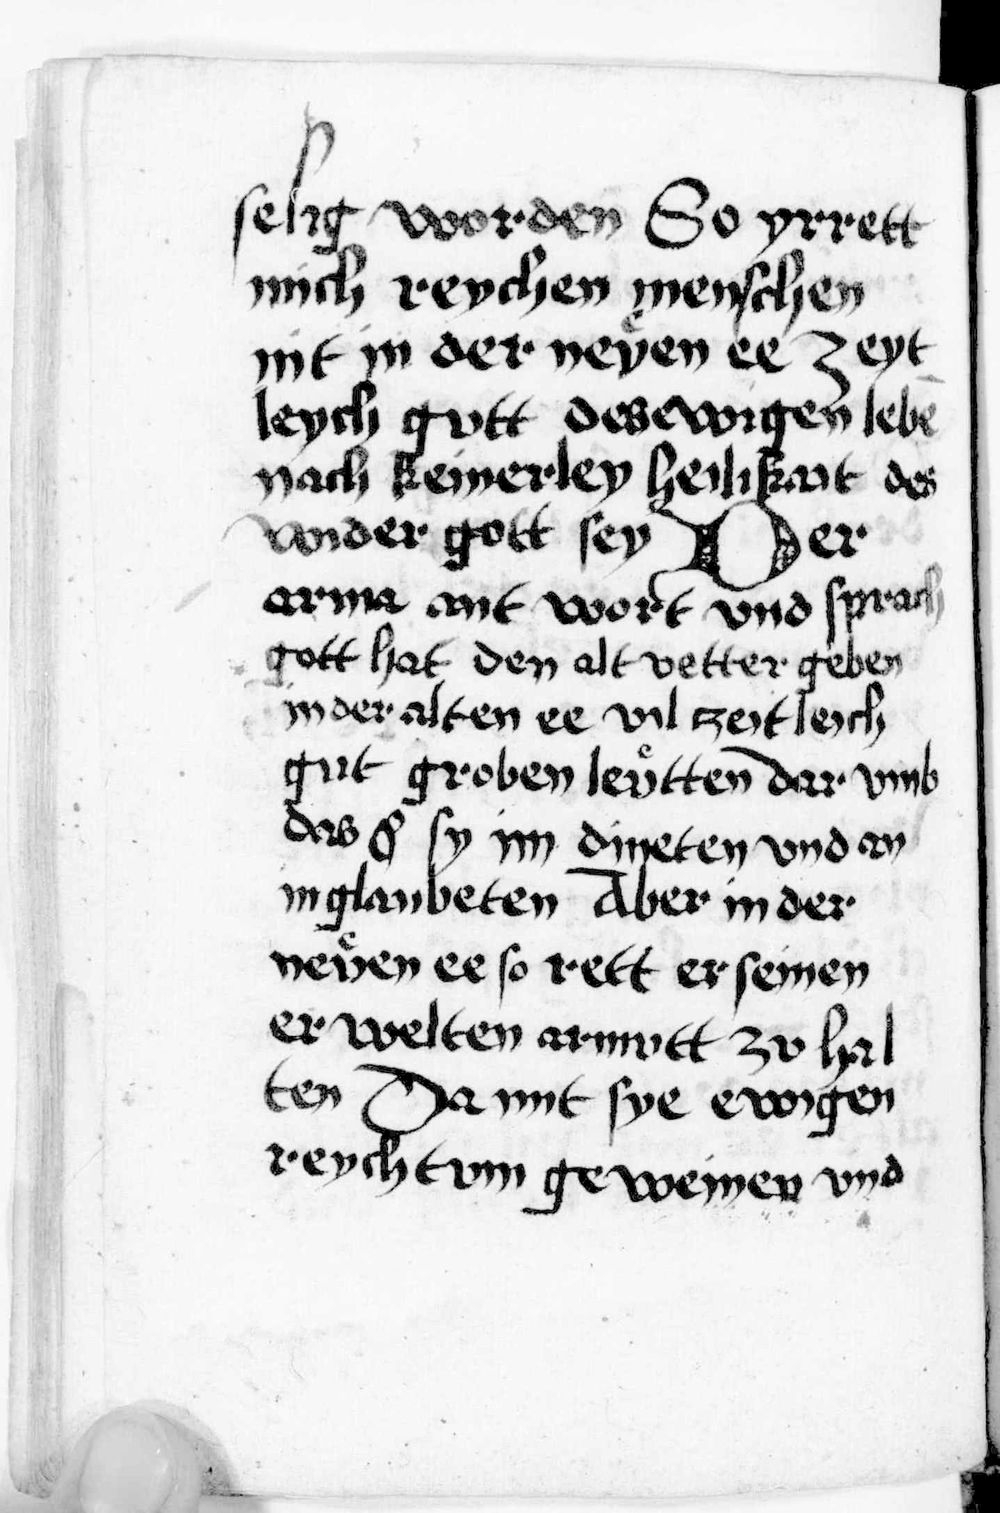 selig worden So yrrett
mich reychen menschen
nit in der neuͤen ee zeyt
leych gvtt des ewigen lebē
nach keinerley heilikait des
wider gott sey Der
arma ant wort vnd sprach
gott hat den alt vetter geben
in der alten ee vil zeitleich
gut groben leuͤtten dar vmb
das sy im dineten vnd an
in glaubeten Aber in der
neuͤen ee so rett er seinen
er welten armvtt zv hal
ten Da mit sye ewigen
reychtvm geweinen vnd